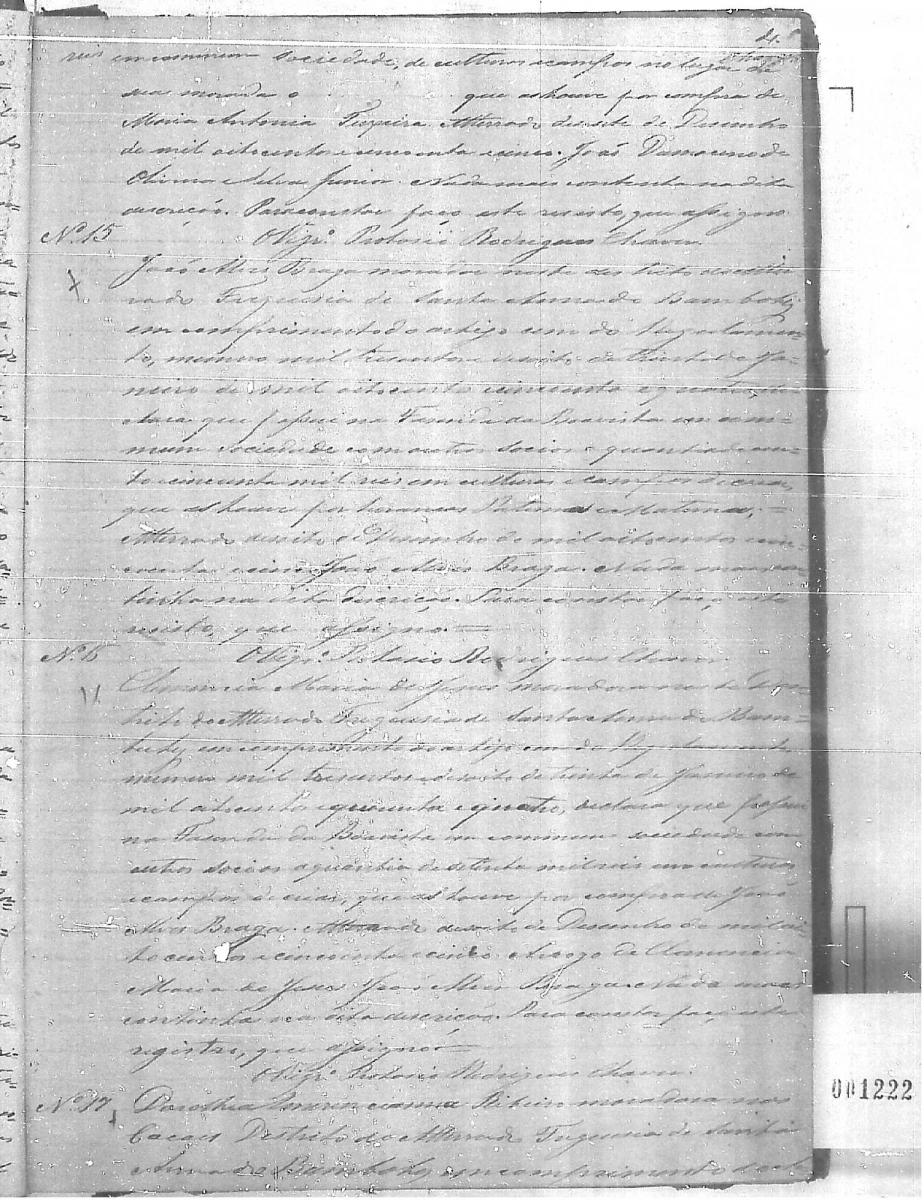 4.
reis em commum sociedade, de culturas e campos no lugar de
sua morada o que as houve por compra de
Maria Antonia Teixeira. Atterrado desoito de Desembro
de mil oitocentos e cincoenta e cinco. João Damaceno de
Oliveira e Silva Junior. Nada mais continha na dita
discrição. Para constar faço este resisto, que assigno
Nº 15 O Vigrº Protasio Rodrigues Chaves.
José Alves Braga morador neste destrito do Atter-
rado Freguesia de Santa Anna do Bambohy
em comprimento do artigo cem do Regulamen-
to, numero mil tresentos e desoito de trinta de Ja-
neiro de mil oitocentos cincoenta e quatro, de-
clara que possui na Fasenda da Boavista em com-
mum sociedade com outros socios a quantia de cen-
to e cincoenta mil reis em culturas e campos de criar,
que as houve por heranças Paternas e Maternas.
Atterrado desoito de Desembro de mil oitocentos cin-
coenta e cinco. José Alves Braga. Nada mais con-
tinha na dita discrição. Para constar faço este
resisto, que assigno.
Nº 16 O Vigrº Protasio Rodrigues Chaves.
Clemencia Maria de Jesus moradora neste Des-
trito do Atterrado Freguesia de Santa Anna do Bam-
bohy, em comprimento do artigo cem do Regulamento
numero mil tresentos e desoito de trinta de Janeiro de
mil oitocentos e cincoenta e quatro, declara que possui
na Fasenda da Boavista em commum sociedade com
outros socios a quantia de setenta mil reis em culturas
e campos de criar, que as houve por compra de José
Alves Braga. Atterrado desoito de Desembro de mil oi-
to centos e cincoenta e cinco. Arrogo de Clemencia
Maria de Jesus José Alves Braga. Nada mais
continha na dita discrição. Para constar faço este
registro, que assignei
O Vigrº Protasio Rodrigues Chaves.
Nº 17 Dorothea Ribeiro moradora nos
Cacaes Destrito do Atterrado Freguesia de Santa
Anna do Bambohy, em comprimento do
001222